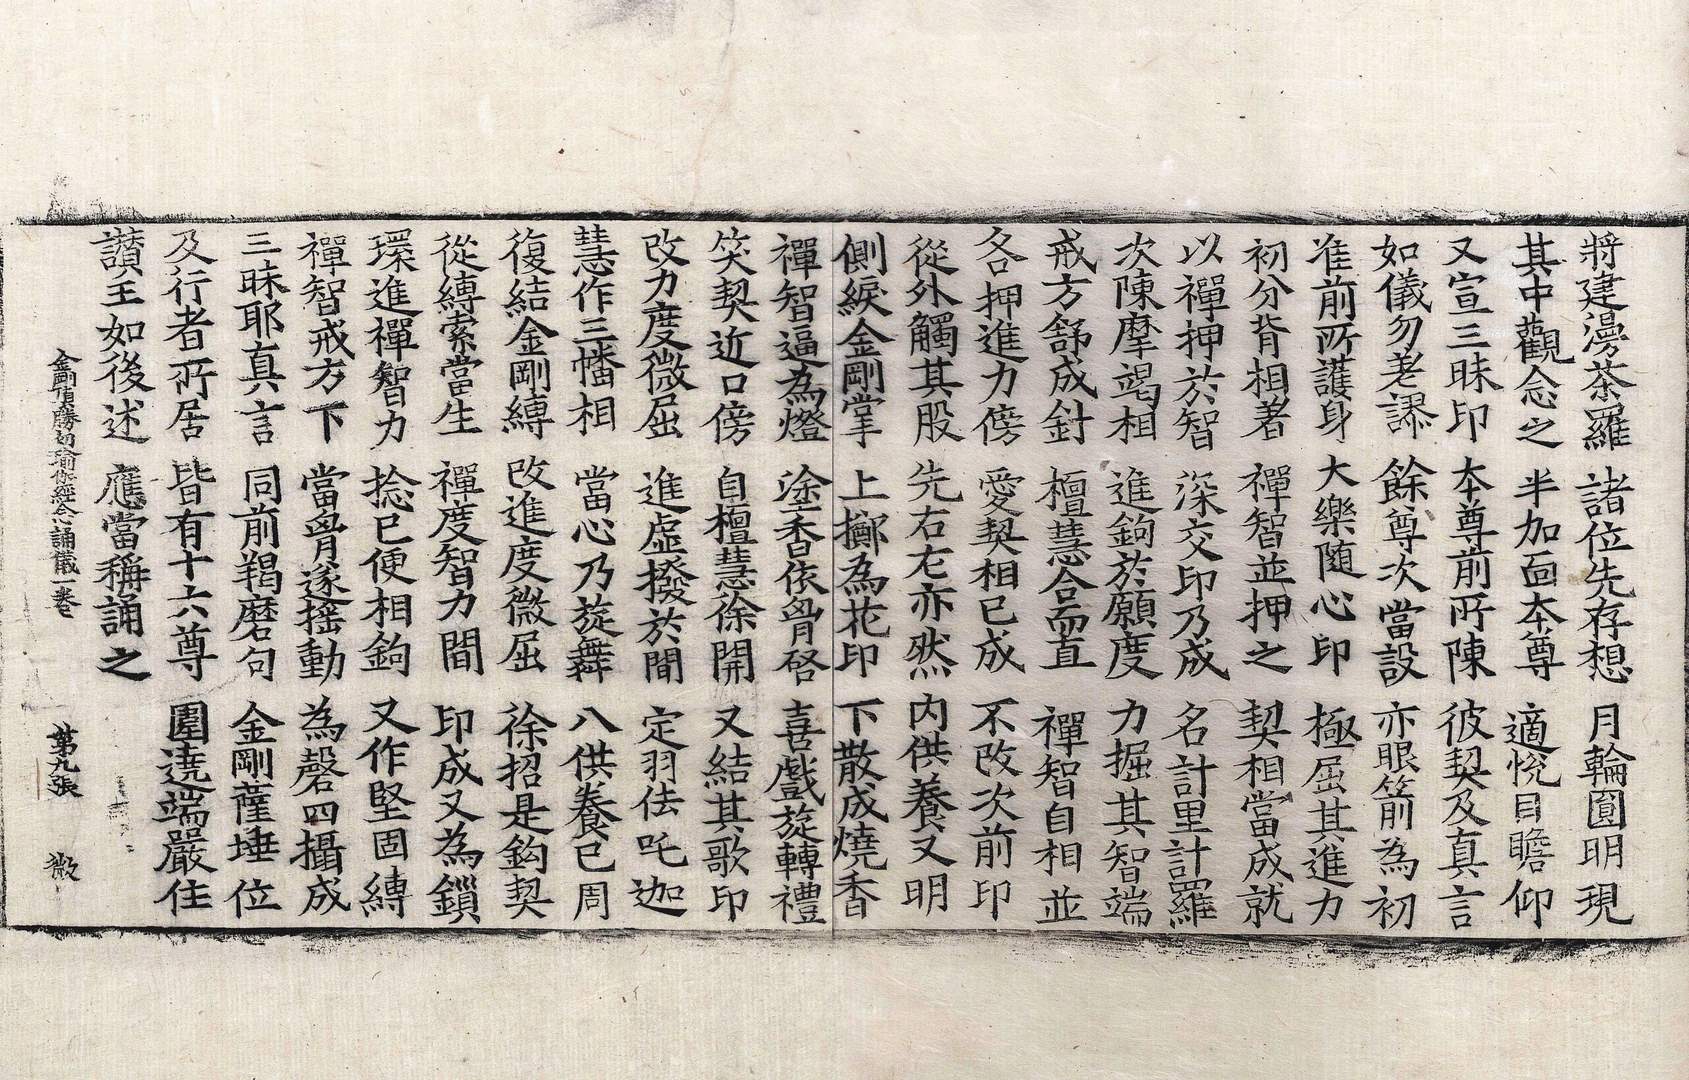 將建漫荼羅 諸位先存想 月輪圓明現
其中觀念之 半加面本尊 適悅目瞻仰
又宣三昧印 本尊前所陳 彼契及真言
如儀勿差謬 餘尊次當設 亦眼箭為初
准前所護身 大樂隨心印 極屈其進力
初分背相著 禪智並押之 契相當成就
以禪押於智 深交印乃成 名計里計羅
次陳摩竭相 進鉤於願度 力掘其智端
戒方舒成針 檀慧合而直 禪智自相並
各押進力傍 愛契相已成 不改次前印
從外觸其股 先右左亦然 內供養又明
側綟金剛掌 上擲為花印 下散成燒香
禪智逼為燈 塗香依胷啓 喜戲旋轉禮
笑契近口傍 自檀慧徐開 又結其歌印
改力度微屈 進虛撥於間 定羽佉吒迦
慧作三幡相 當心乃旋舞 八供養已周
復結金剛縛 改進度微屈 徐招是鉤契
從縛索當生 禪度智力間 印成又為鎻
環進禪智力 捻已便相鉤 又作堅固縛
禪智戒方下 當胷遂搖動 為磬四攝成
三昧耶真言 同前羯磨句 金剛薩埵位
及行者所居 皆有十六尊 圍遶端嚴住
讚王如後述 應當稱誦之
金剛頂勝初瑜伽經念誦儀一卷 第九張 微